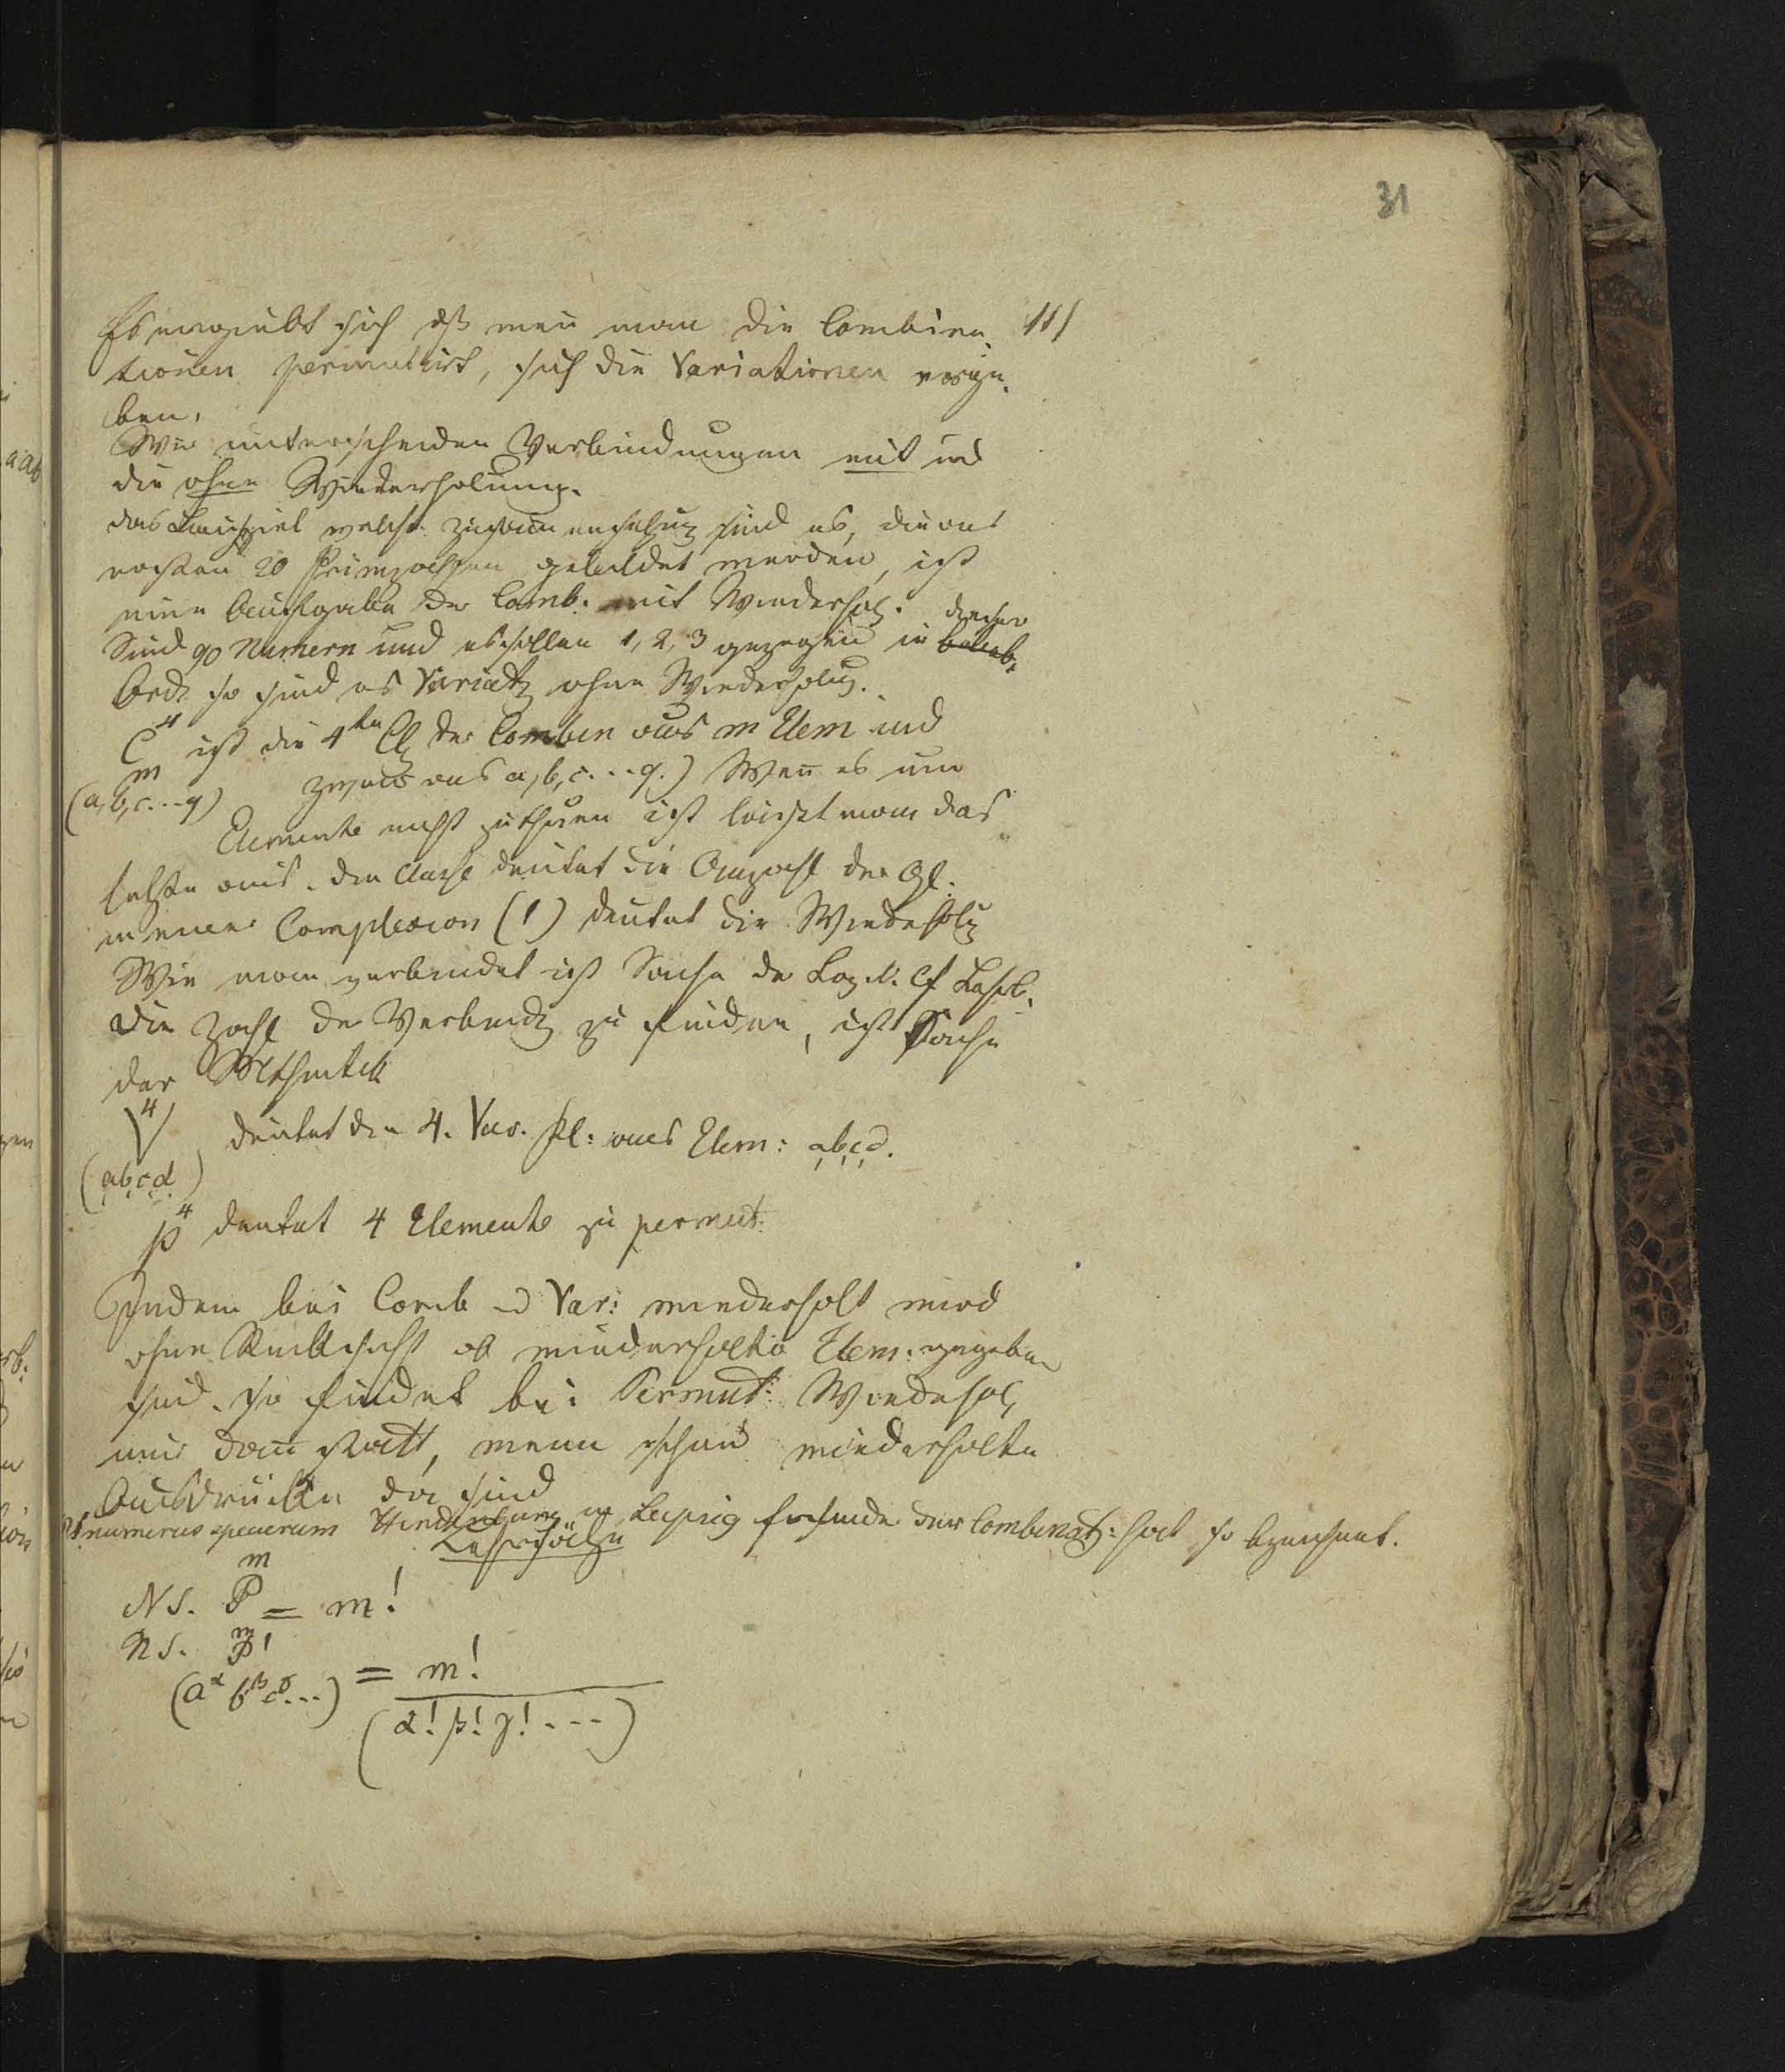 31
111
Es ergiebt sich dß wenn man die Combina¬
tionen permutirt, sich die Variationen erge¬
ben.
Wir unterscheiden Verbindungen mit und
die ohne Wiederholung.
das Beispiel welche Zusammensetzung sind es, die aus
ersten 20 Primzahlen gebildet werden, ist
eine Aufgabe der Comb. mit Wiederhol.
Sind 90 Numern und es sollen 1, 2, 3 gezogen in belieb. dieser
Ord. so sind es Variat ohne Wiederholung.
C⁴ ist die 4te Cl der Combin aus m Elem und
m
(a, b, c...q) zwar aus a, b, c...q.) Wenn es um
Elemente nicht zuthun ist läißt man das
letzte aus. Die Classe deutet die Anzahl der Gl.
in einer Complexion (') deutet die Wiederholung
Wie man verbindet ist Sache der Log. Cf Lehrb.
Die Zahl der Verbindung zu finden, ist Sache
der Arithmetik
V⁴ deutet die 4. Var. Kl: aus Elem: a,b,c,d.
(a,b,c,d)
p⁴ deutet 4 Elemente zu permut:
Indem bei Comb und Var: wiederholt wird
ohne Rücksicht ob wiederholte Elem: gegeben
sind. so findet bei Permut: Wiederhol
nur dann statt, wenn schon wiederholte
Ausdrücke da sind
NS numerus specierum Hindenburg in Leipzig Erfinder der Combinat: hat so bezeichnet.
Lehrsätze
m
NS. P = m!
m
NS. P'
(a^α b^β c^γ...) = m!
(α! β! γ! ---)